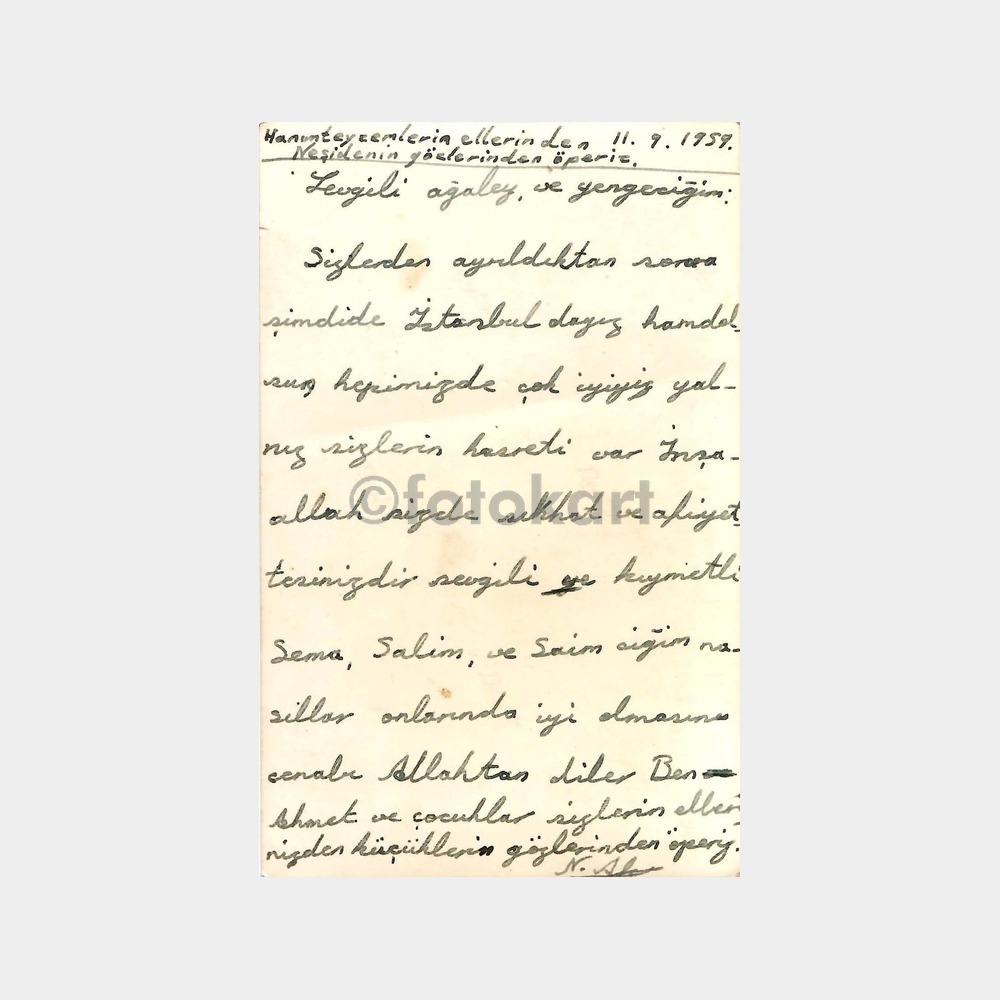 Hanımteyzemlerin ellerinden 11. 9. 1959.
Neşidenin gözlerinden öperiz.
Sevgili ağabey, ve yengeciğim:
Sizlerden ayrıldıktan sonra
şimdide İstanbul dayız hamdol-
sun hepimizde çok iyiyiz yal-
nız sizlerin hasreti var İnşa-
allah sizde sıhhat ve afiyet-
tesinizdir sevgili ve kıymetli
Sema, Salim, ve Saim ciğim na-
sillar onlarında iyi olmasını
cenabı Allahtan diler Ben
Ahmet ve çocuklar sizlerin elleri-
nizden küçüklerin gözlerinden öperiz.
©fotokart